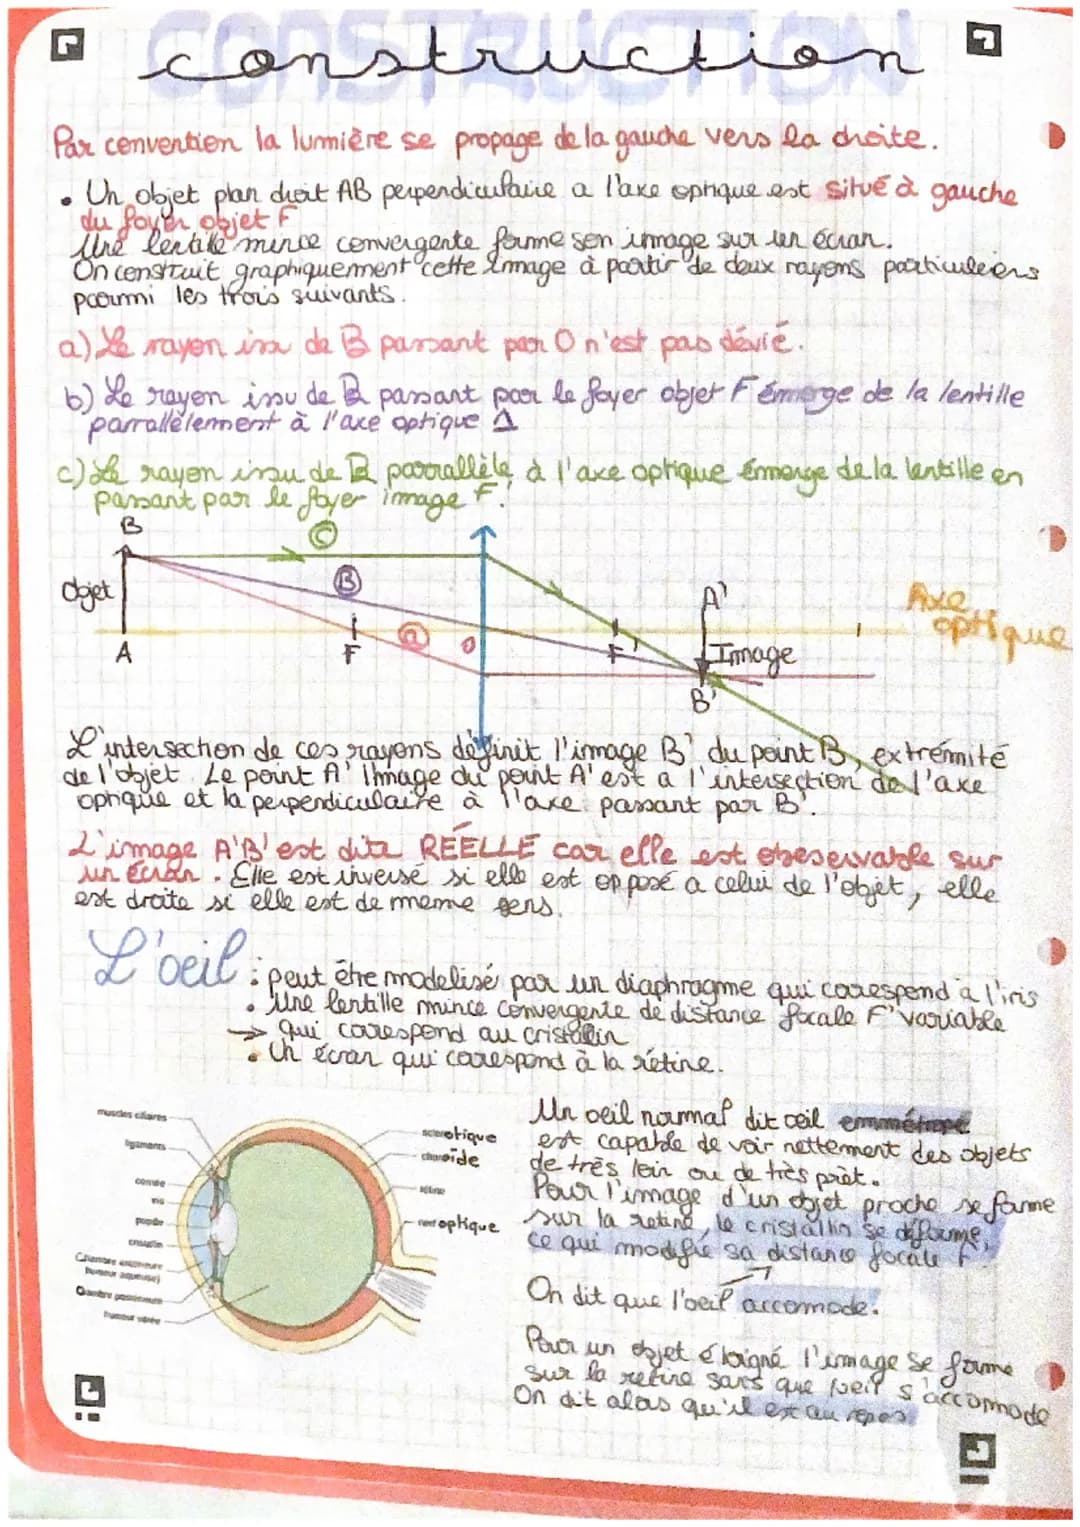 construction
Par convention la lumière se propage de la gauche vers la droite.
• Un objet plan droit AB perpendiculaire a l'axe optique est situé à gauche
du foyer objet F
Une lentille mince convergente forme son image sur un écran.
On construit graphiquement cette image à partir de deux rayons particuliers
parmi les trois suivants.
a) Le rayon issu de B passant par O n'est pas dévié.
b) Le rayon issu de B passant par le foyer objet F émerge de la lentille
parrallèlement à l'axe optique Δ
c) Le rayon issu de B parrallèle à l'axe optique émmerge de la lentille en
passant par le foyer image F'.
B
C
Objet
B
A'
Axe
optique
a
O
A
F
F'
Image
B'
L'intersection de ces rayons définit l'image B' du point B, extrémité
de l'objet. Le point A' Image du point A' est a l'intersection de l'axe
optique et la perpendiculaire à l'axe passant par B'.
L'image A'B' est dite RÉELLE car elle est obeservable sur
un écran. Elle est inversé si elle est opposé a celui de l'objet, elle
est droite si elle est de meme sens.
L'oeil : peut être modelisé par un diaphragme qui correspond à l'iris
• Une lentille mince convergente de distance focale F' variable
→ qui correspond au cristallin
• Un écran qui correspond à la rétine.
muscles ciliaires
ligaments
cornée
iris
pupille
cristallin
Chambre antérieure
humeur aqueuse)
humeur vitrée
sclérotique
choroïde
rétine
nerf optique
Un oeil normal dit œil emmétrope
est capable de voir nettement des objets
de très loin ou de très prèt.
Pour l'image d'un objet proche se forme
sur la retine, le cristallin se déforme,
ce qui modifie sa distance focale F'
On dit que l'oeil accomode.
Pour un objet éloigné l'image se forme
sur la retine sans que l'oeil s'accommode
On dit alors qu'il est au repos